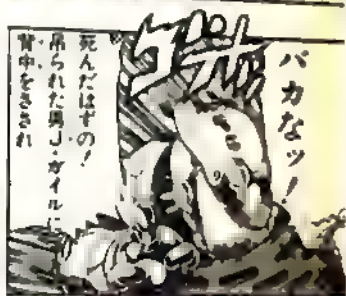 バカなッ!
死んだはずの!
吊られた男J・ガイルに
背中をさされ